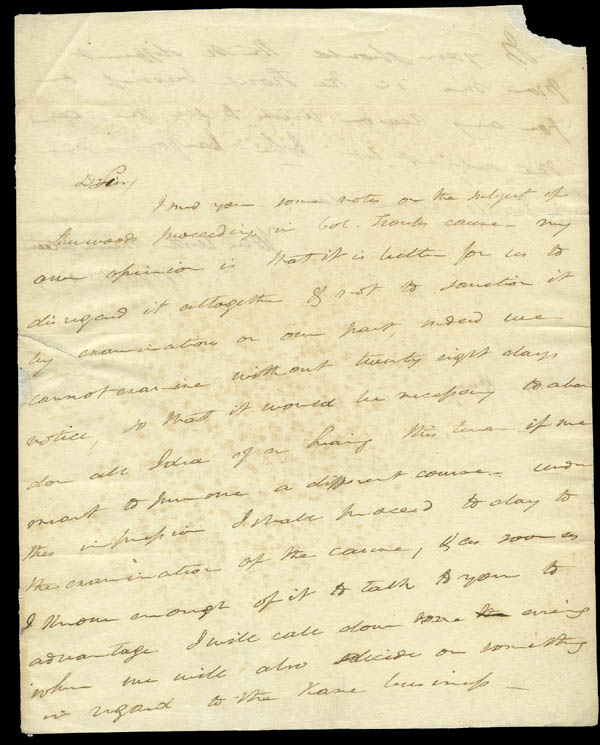 D Sir,
I send you some notes on the subject of
Sherwoods proceeding in Col. Troups cause - my
own opinion is that it is better for us to
disregard it altogether & not to sanction it
by examination on our part, indeed we
cannot examine without twenty eight days
notice, so that it would be necessary to aban
don all Idea of a hearing this Term if we
meant to pursue a different course - under
this impression I shall proceed to day to
the examination of the cause, & as soon as
I know enough of it to talk to you to
advantage I will call down some evening
when we will also decide on something
in regard to the Kane business -